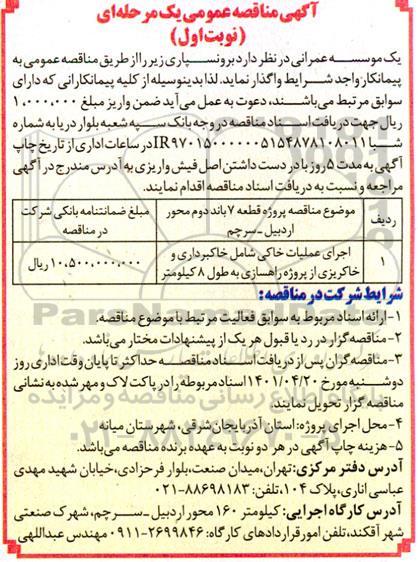 آگهی مناقصه عمومی یک مرحله ای
(نوبت اول)
یک موسسه عمرانی در نظر دارد برونسپاری زیر را از طریق مناقصه عمومی به
پیمانکار واجد شرایط واگذار نماید. لذا بدینوسیله از کلیه پیمانکارانی که دارای
سوابق مرتبط می باشند، دعوت به عمل می آید ضمن واریز مبلغ ۱,۰۰۰,۰۰۰
ریال جهت دریافت اسناد مناقصه در وجه بانک سپه شعبه بلوار دریا به شماره
شبا IR۹۷۰۱۵۰۰۰۰۰۰۵۱۵۴۸۷۸۱۰۸۰۱۱ در ساعات اداری از تاریخ چاپ
آگهی به مدت ۵ روز با در دست داشتن اصل فیش واریزی به آدرس مندرج در آگهی
مراجعه و نسبت به دریافت اسناد مناقصه اقدام نمایند.
ردیف	موضوع مناقصه پروژه قطعه ۷ باند دوم محور اردبیل - سرچم	مبلغ ضمانتنامه بانکی شرکت در مناقصه
۱	اجرای عملیات خاکی شامل خاکبرداری و خاکریزی از پروژه راهسازی به طول ۸ کیلومتر	۱۰,۵۰۰,۰۰۰,۰۰۰ ریال
شرایط شرکت در مناقصه:
۱- ارائه اسناد مربوط به سوابق فعالیت مرتبط با موضوع مناقصه.
۲- مناقصه گزار در رد یا قبول هر یک از پیشنهادات مختار می باشد.
۳- مناقصه گران پس از دریافت اسناد مناقصه حداکثر تا پایان وقت اداری روز
دوشنبه مورخ ۱۴۰۱/۰۴/۲۰ اسناد مربوطه را در پاکت لاک و مهر شده به نشانی
مناقصه گزار تحویل نمایند.
۴- محل اجرای پروژه: استان آذربایجان شرقی، شهرستان میانه
۵- هزینه چاپ آگهی در هر دو نوبت به عهده برنده مناقصه می باشد.
آدرس دفتر مرکزی: تهران، میدان صنعت، بلوار فرحزادی، خیابان شهید مهدی
عباسی اناری، پلاک ۱۰۴، تلفن: ۸۸۶۹۸۱۸۳-۰۲۱
آدرس کارگاه اجرایی: کیلومتر ۱۶۰ محور اردبیل - سرچم، شهرک صنعتی
شهر آقکند، تلفن امور قراردادهای کارگاه: ۲۶۹۹۸۴۶-۰۹۱۱ مهندس عبداللهی